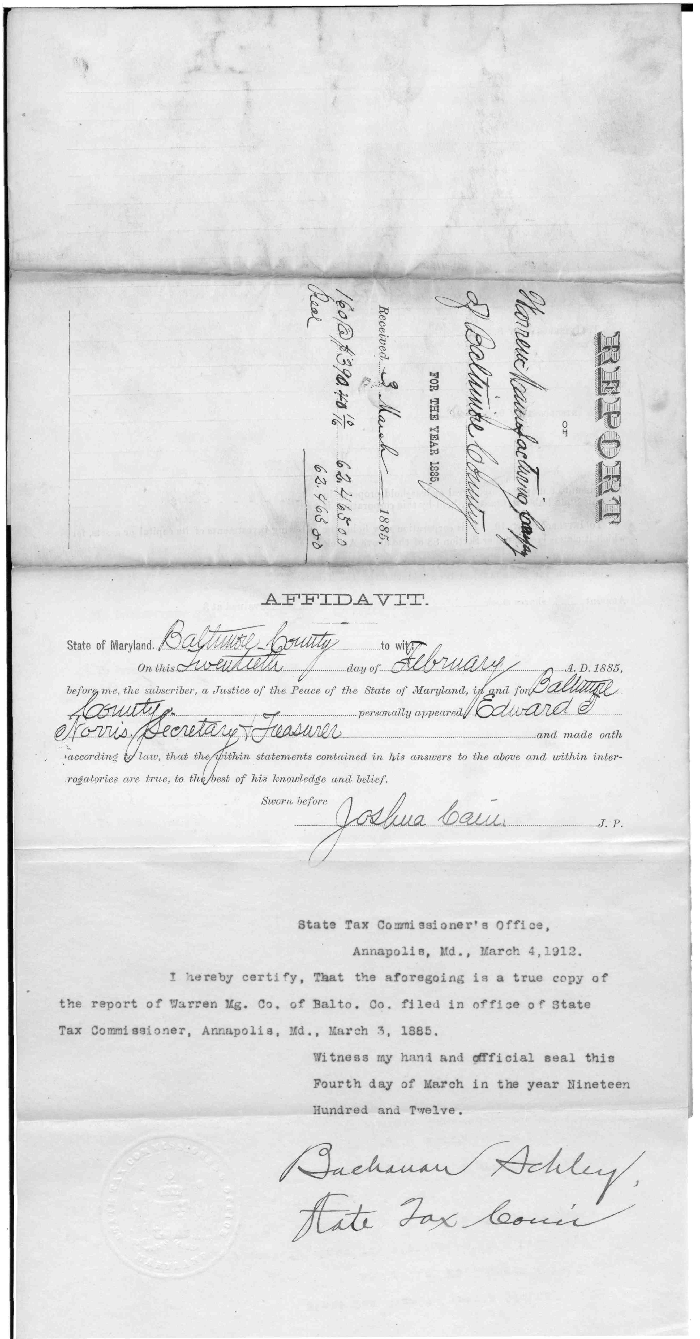 REPORT
OF
Warren Manufacturing Compy
of Baltimore County
FOR THE YEAR 1885,
Received 3 March 1885.
160 @ $390 40 10/16 62.465 00
Real
62.465 00
AFFIDAVIT.
State of Maryland. Baltimore County to wit:
On this Twentieth day of February A. D. 1885,
before me, the subscriber, a Justice of the Peace of the State of Maryland, in and for Baltimore
County personally appeared Edward S
Norris, Secretary & Treasurer and made oath
according to law, that the within statements contained in his answers to the above and within inter-
rogatories are true, to the best of his knowledge and belief.
Sworn before
Joshua Cain J. P.
State Tax Commissioner's Office,
Annapolis, Md., March 4,1912.
I hereby certify, That the aforegoing is a true copy of
the report of Warren Mg. Co. of Balto. Co. filed in office of State
Tax Commissioner, Annapolis, Md., March 3, 1885.
Witness my hand and official seal this
Fourth day of March in the year Nineteen
Hundred and Twelve.
Buchanan Schley,
State Tax Comir